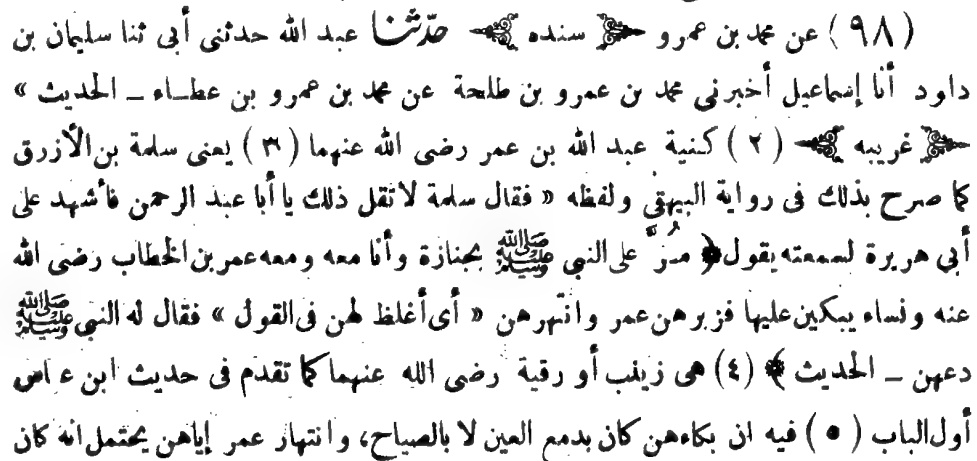 (٩٨) عن محمد بن عمرو ﴿ سنده ﴾ حدّثنا عبد الله حدثنى أبى ثنا سليمان بن
داود أنا إسماعيل أخبرنى محمد بن عمرو بن طلحة عن محمد بن عمرو بن عطاء ــ الحديث »
﴿ غريبه ﴾ (٢) كنية عبد الله بن عمر رضى الله عنهما (٣) يعنى سلمة بن الأزرق
كما صرح بذلك فى رواية البيهقي ولفظه « فقال سلمة لا تقل ذلك يا أبا عبد الرحمن فأشهد على
أبى هريرة لسمعته يقول ﴿ مُرَّ على النبى ﷺ بجنازة وأنا معه ومعه عمر بن الخطاب رضى الله
عنه ونساء يبكين عليها فزبرهن عمر وانتهرهن « أى أغلظ لهن فى القول » فقال له النبى ﷺ
دعهن ــ الحديث ﴾ (٤) هى زينب أو رقية رضى الله عنهما كما تقدم فى حديث ابن عباس
أول الباب (٥) فيه ان بكاءهن كان بدمع العين لا بالصياح، وانتهار عمر إياهن يحتمل انه كان